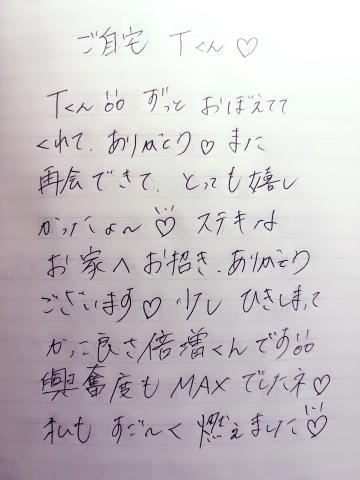 ご自宅 Tくん♡
Tくん!! ずっと おぼえてて
くれて、ありがとう♡ また
再会できて、とっても嬉し
かったょ〜♡ ステキな
お家へお招き、ありがとう
ございます♡ 少し ひきしまって
かっこ良さ倍増くんです!!
興奮度も MAX でしたネ♡
私も すご〜く 燃えました♡